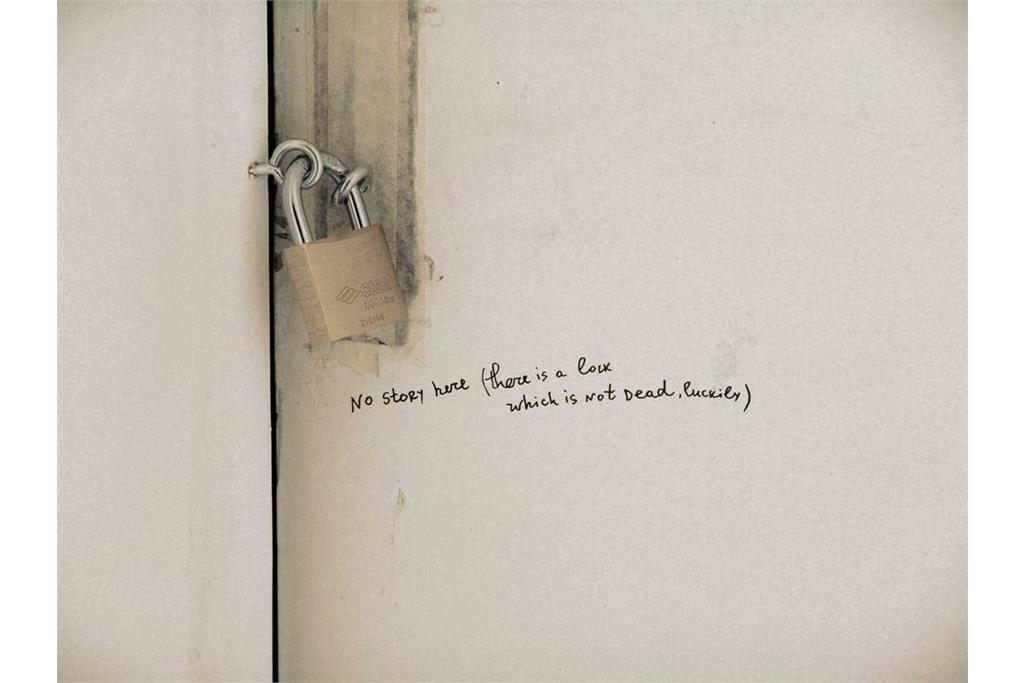 No story here (there is a lock
which is not Dead, luckily)